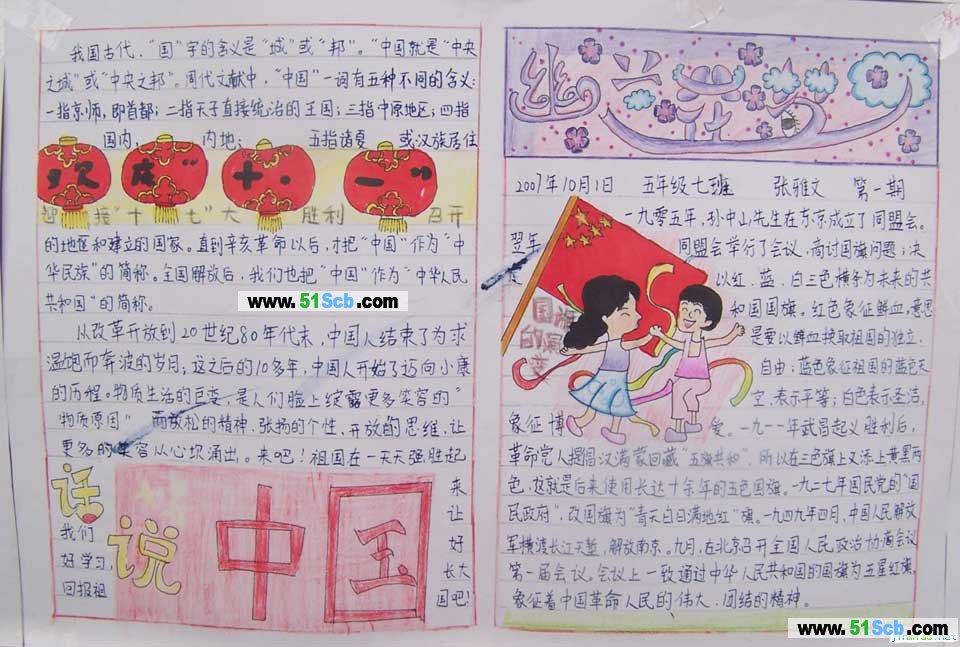 我国古代，“国”字的含义是“城”或“邦”。“中国就是“中央
之城”或“中央之邦”。周代文献中，“中国”一词有五种不同的含义：
一指京师，即首都；二指天子直接统治的王国；三指中原地区；四指
国内，内地；五指诸夏或汉族居住
欢度“十·一”
迎接“十七”大胜利召开
的地区和建立的国家。直到辛亥革命以后，才把“中国”作为“中
华民族”的简称。全国解放后，我们也把“中国”作为“中华人民
共和国”的简称。
www.51Scb.com
从改革开放到20世纪80年代末，中国人结束了为求
温饱而奔波的岁月，这之后的10多年，中国人开始了迈向小康
的历程。物质生活的巨变，是人们脸上绽露更多笑容的“
物质原因” 而放松的精神、张扬的个性、开放的思维，让
更多的笑容从心坎涌出。来吧！祖国在一天天强胜起
来
让
我们
好好学习，
长大
回报祖国吧！
话说中国
2007年10月1日 五年级七班 张雅文 第一期
一九零五年，孙中山先生在东京成立了同盟会。
翌年 同盟会举行了会议，商讨国旗问题；决
定 以红、蓝、白三色横条为未来的共
和国国旗。红色象征鲜血，意思
是要以鲜血换取祖国的独立、
自由；蓝色象征祖国的蓝色天
空，表示平等；白色表示圣洁，
象征博爱。一九一一年武昌起义胜利后，
国旗的演变
革命党人提倡汉满蒙回藏“五族共和”，所以在三色旗上又添上黄黑两
色，这就是后来使用长达十余年的五色国旗。一九二七年国民党的“国
民政府”，改国旗为“青天白日满地红”旗。一九四九年四月，中国人民解放
军横渡长江天堑，解放南京。九月，在北京召开全国人民政治协商会议
第一届会议，会议上一致通过中华人民共和国的国旗为五星红旗，
象征着中国革命人民的伟大、团结的精神。
www.51Scb.com